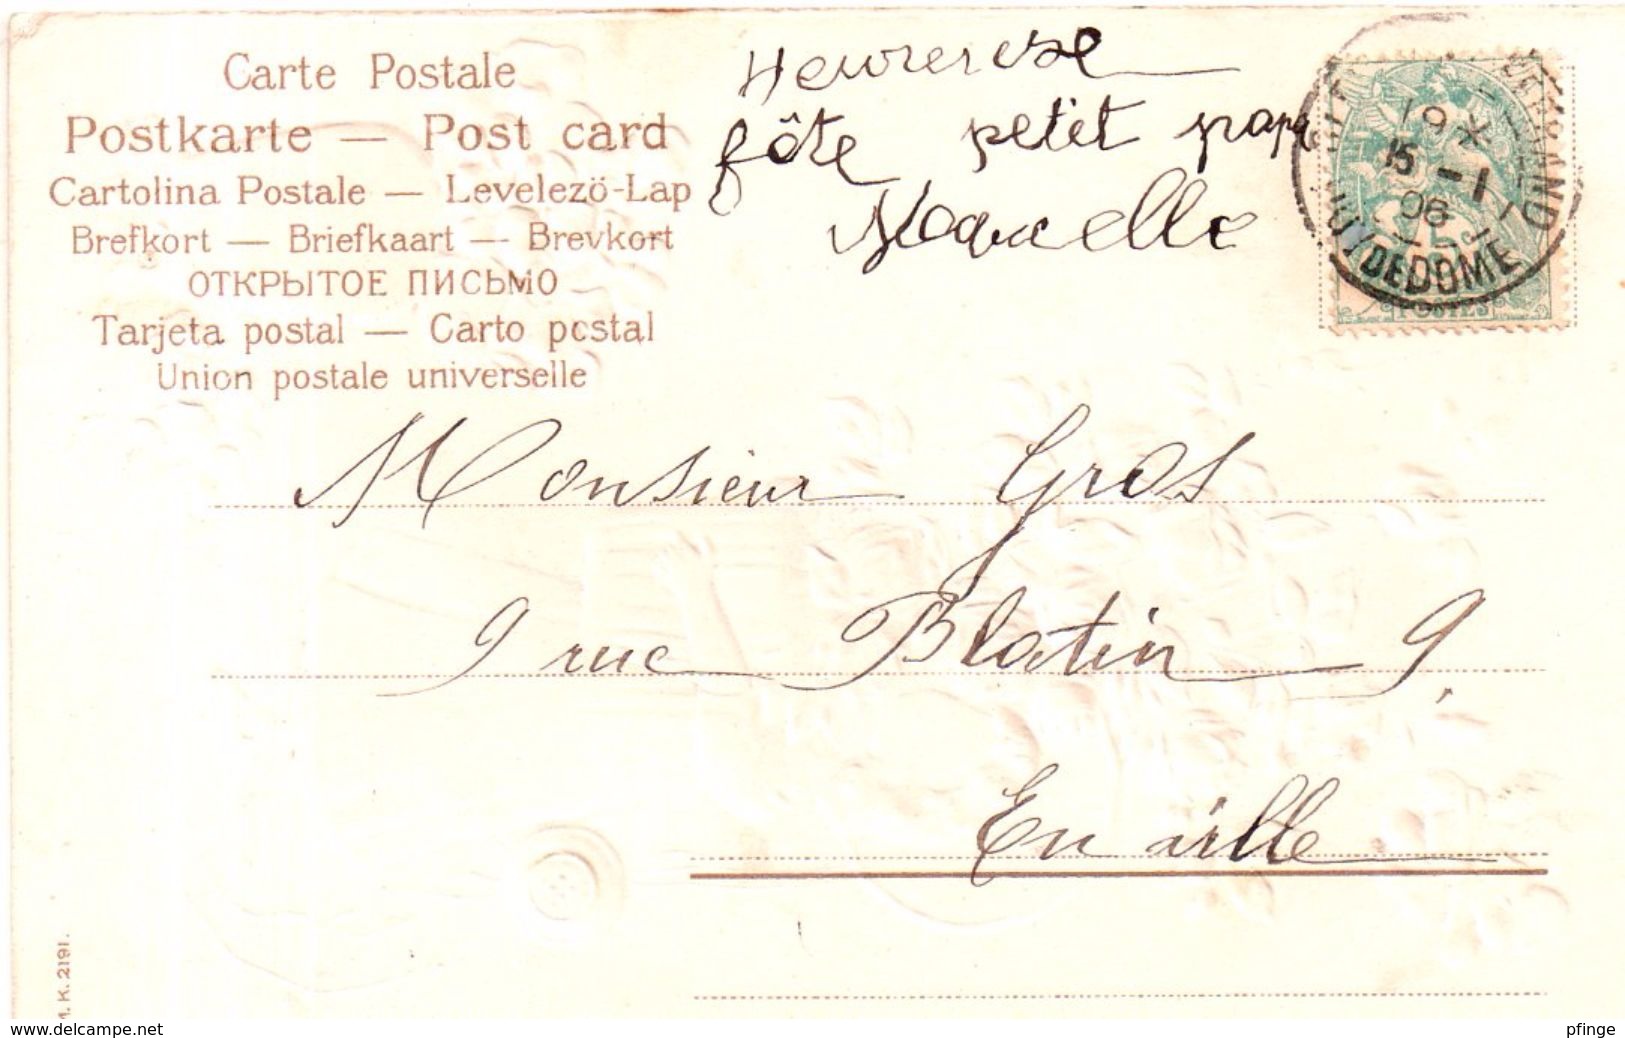 Carte Postale
Postkarte — Post card
Cartolina Postale — Levelezö-Lap
Brefkort — Briefkaart — Brevkort
ОТКРЫТОЕ ПИСЬМО
Tarjeta postal — Carto postal
Union postale universelle
Heurerese
fôte petit papa
Marcelle
19 *
15 - 1
06
PUY DE DOME
POSTES
Monsieur Gros
9 rue Blatin 9.
En ville
M. K. 2191.
www.delcampe.net
pfinge